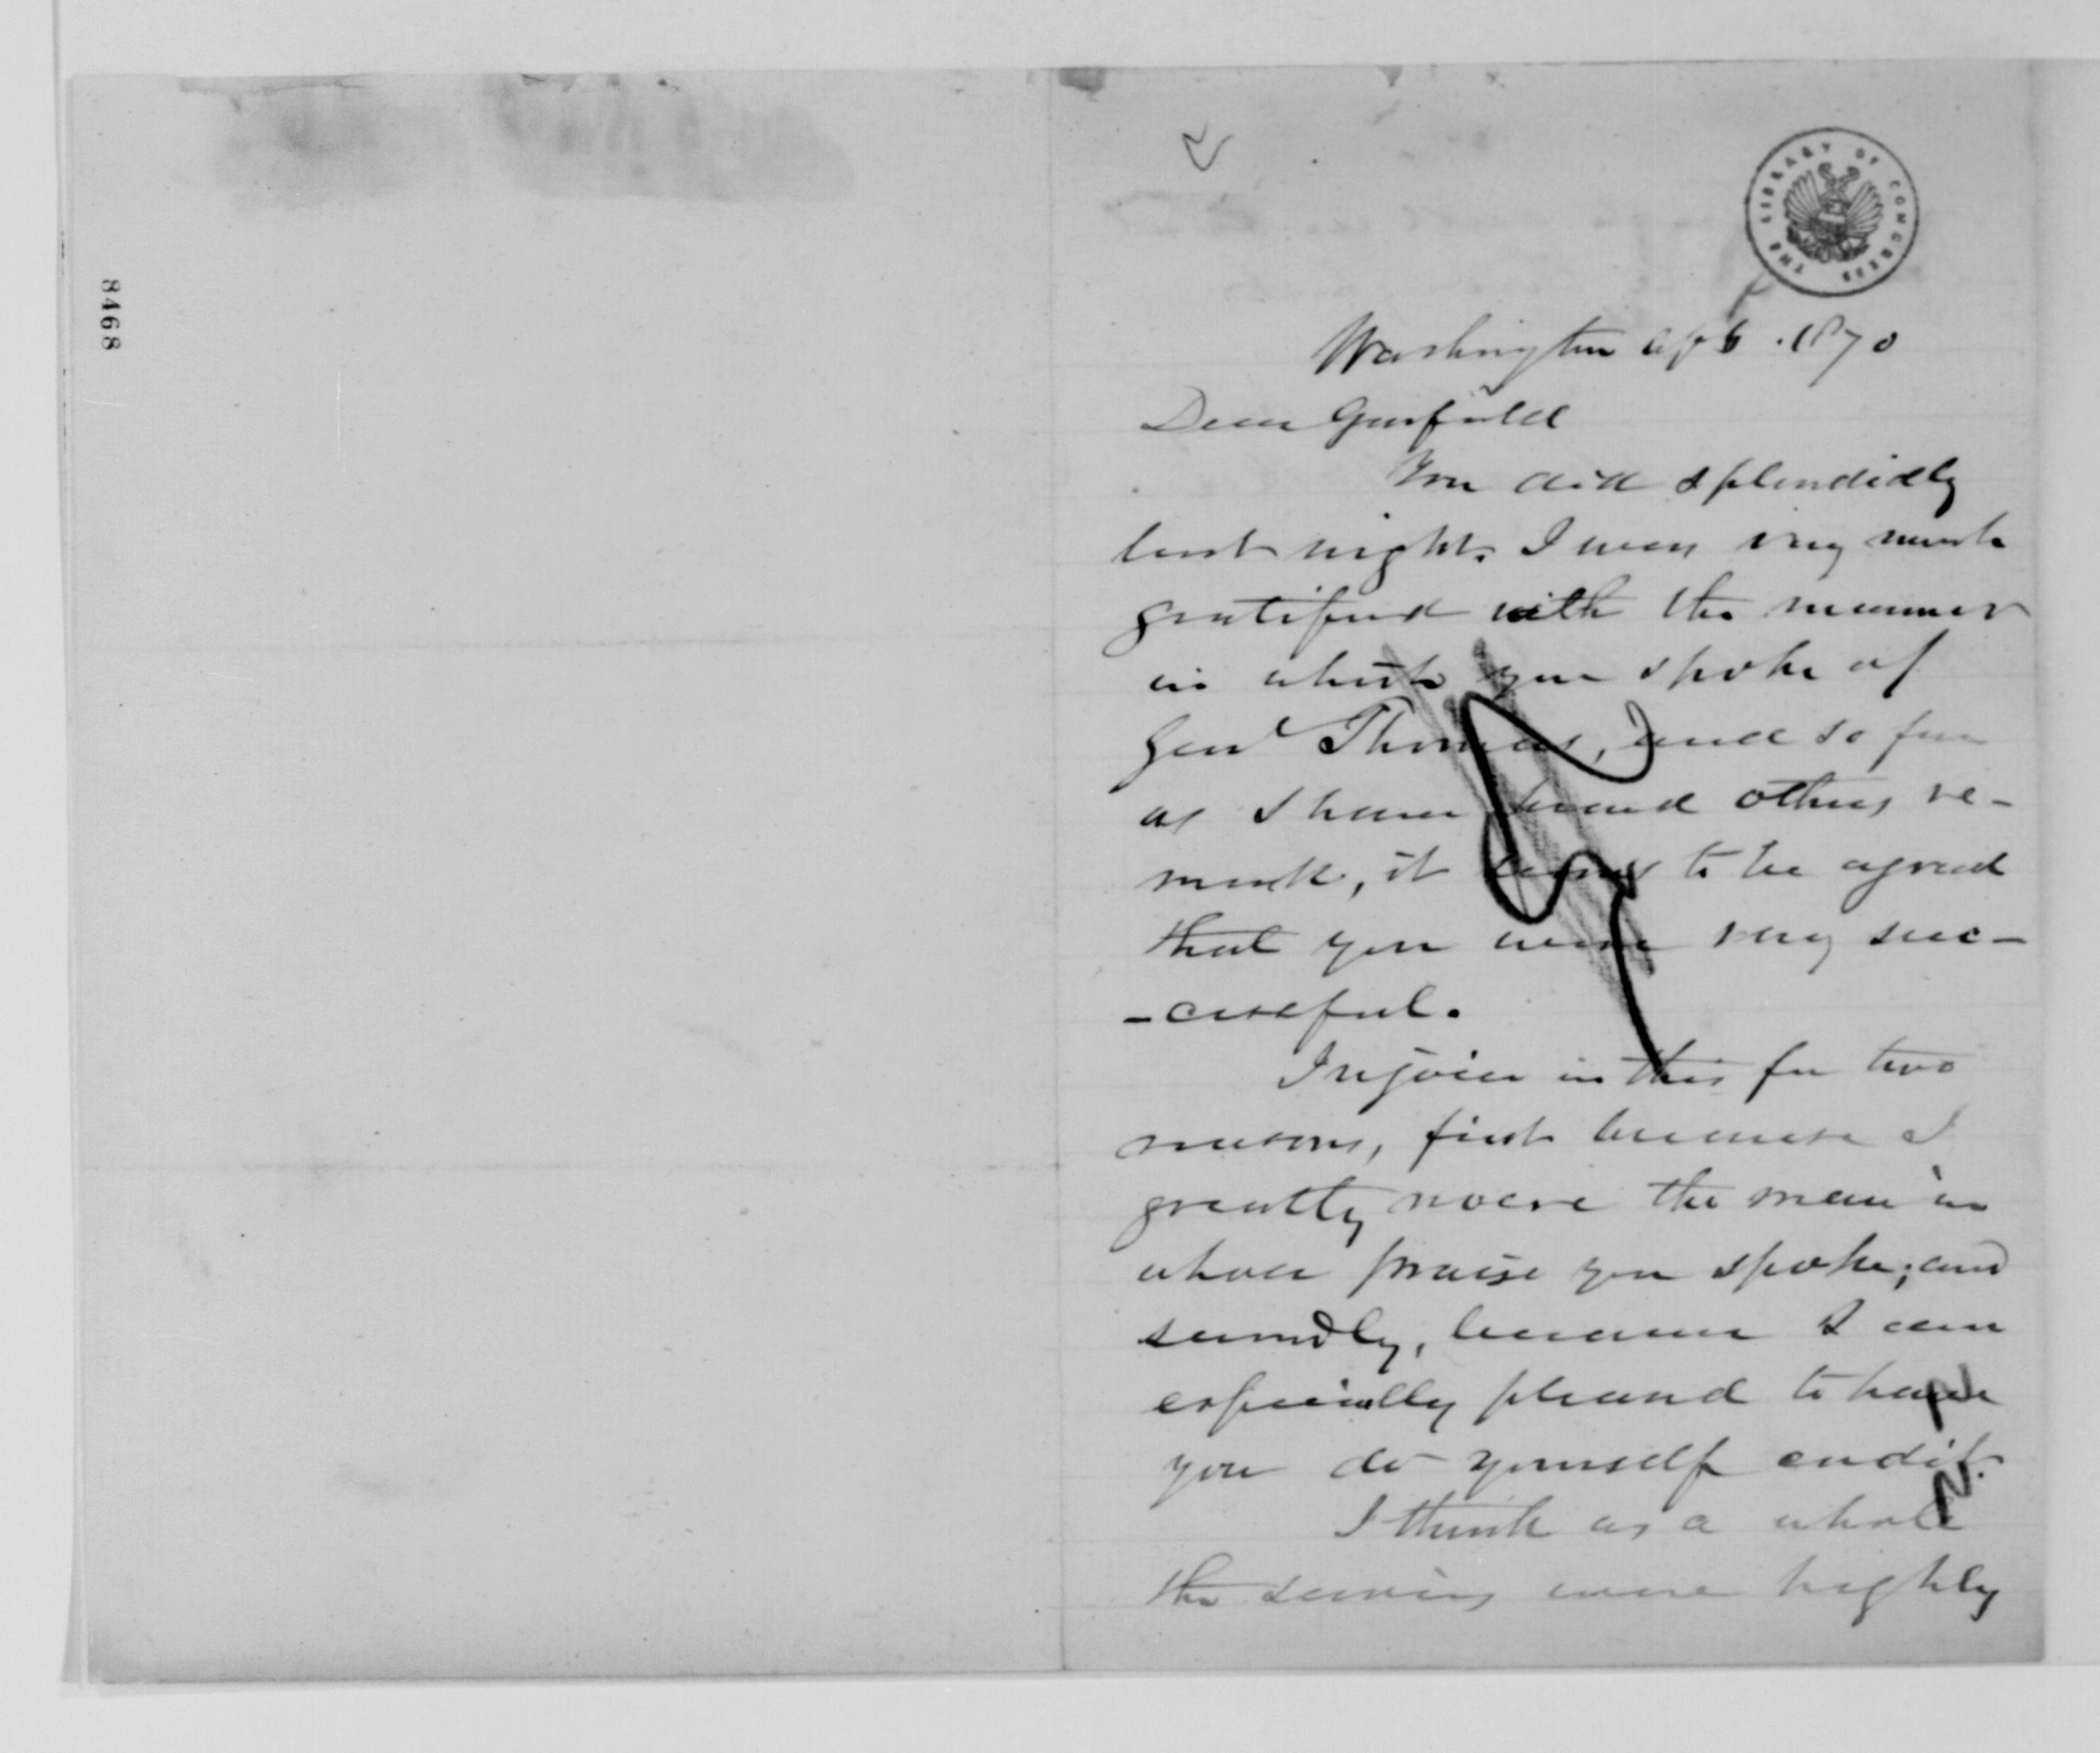 8468
THE LIBRARY OF CONGRESS
Washington Ap 6. 1870
Dear Garfield
You did splendidly
last night. I was very much
gratified with the manner
in which you spoke of
Genl Thomas, and so far
as I have heard others re-
mark, it seems to be agreed
that you were very suc-
-cessful.
I rejoice in this for two
reasons, first because I
greatly revere the man in
whose praise you spoke; and
secondly, because I am
especially pleased to have
you do yourself credit.
I think as a whole
the services were highly